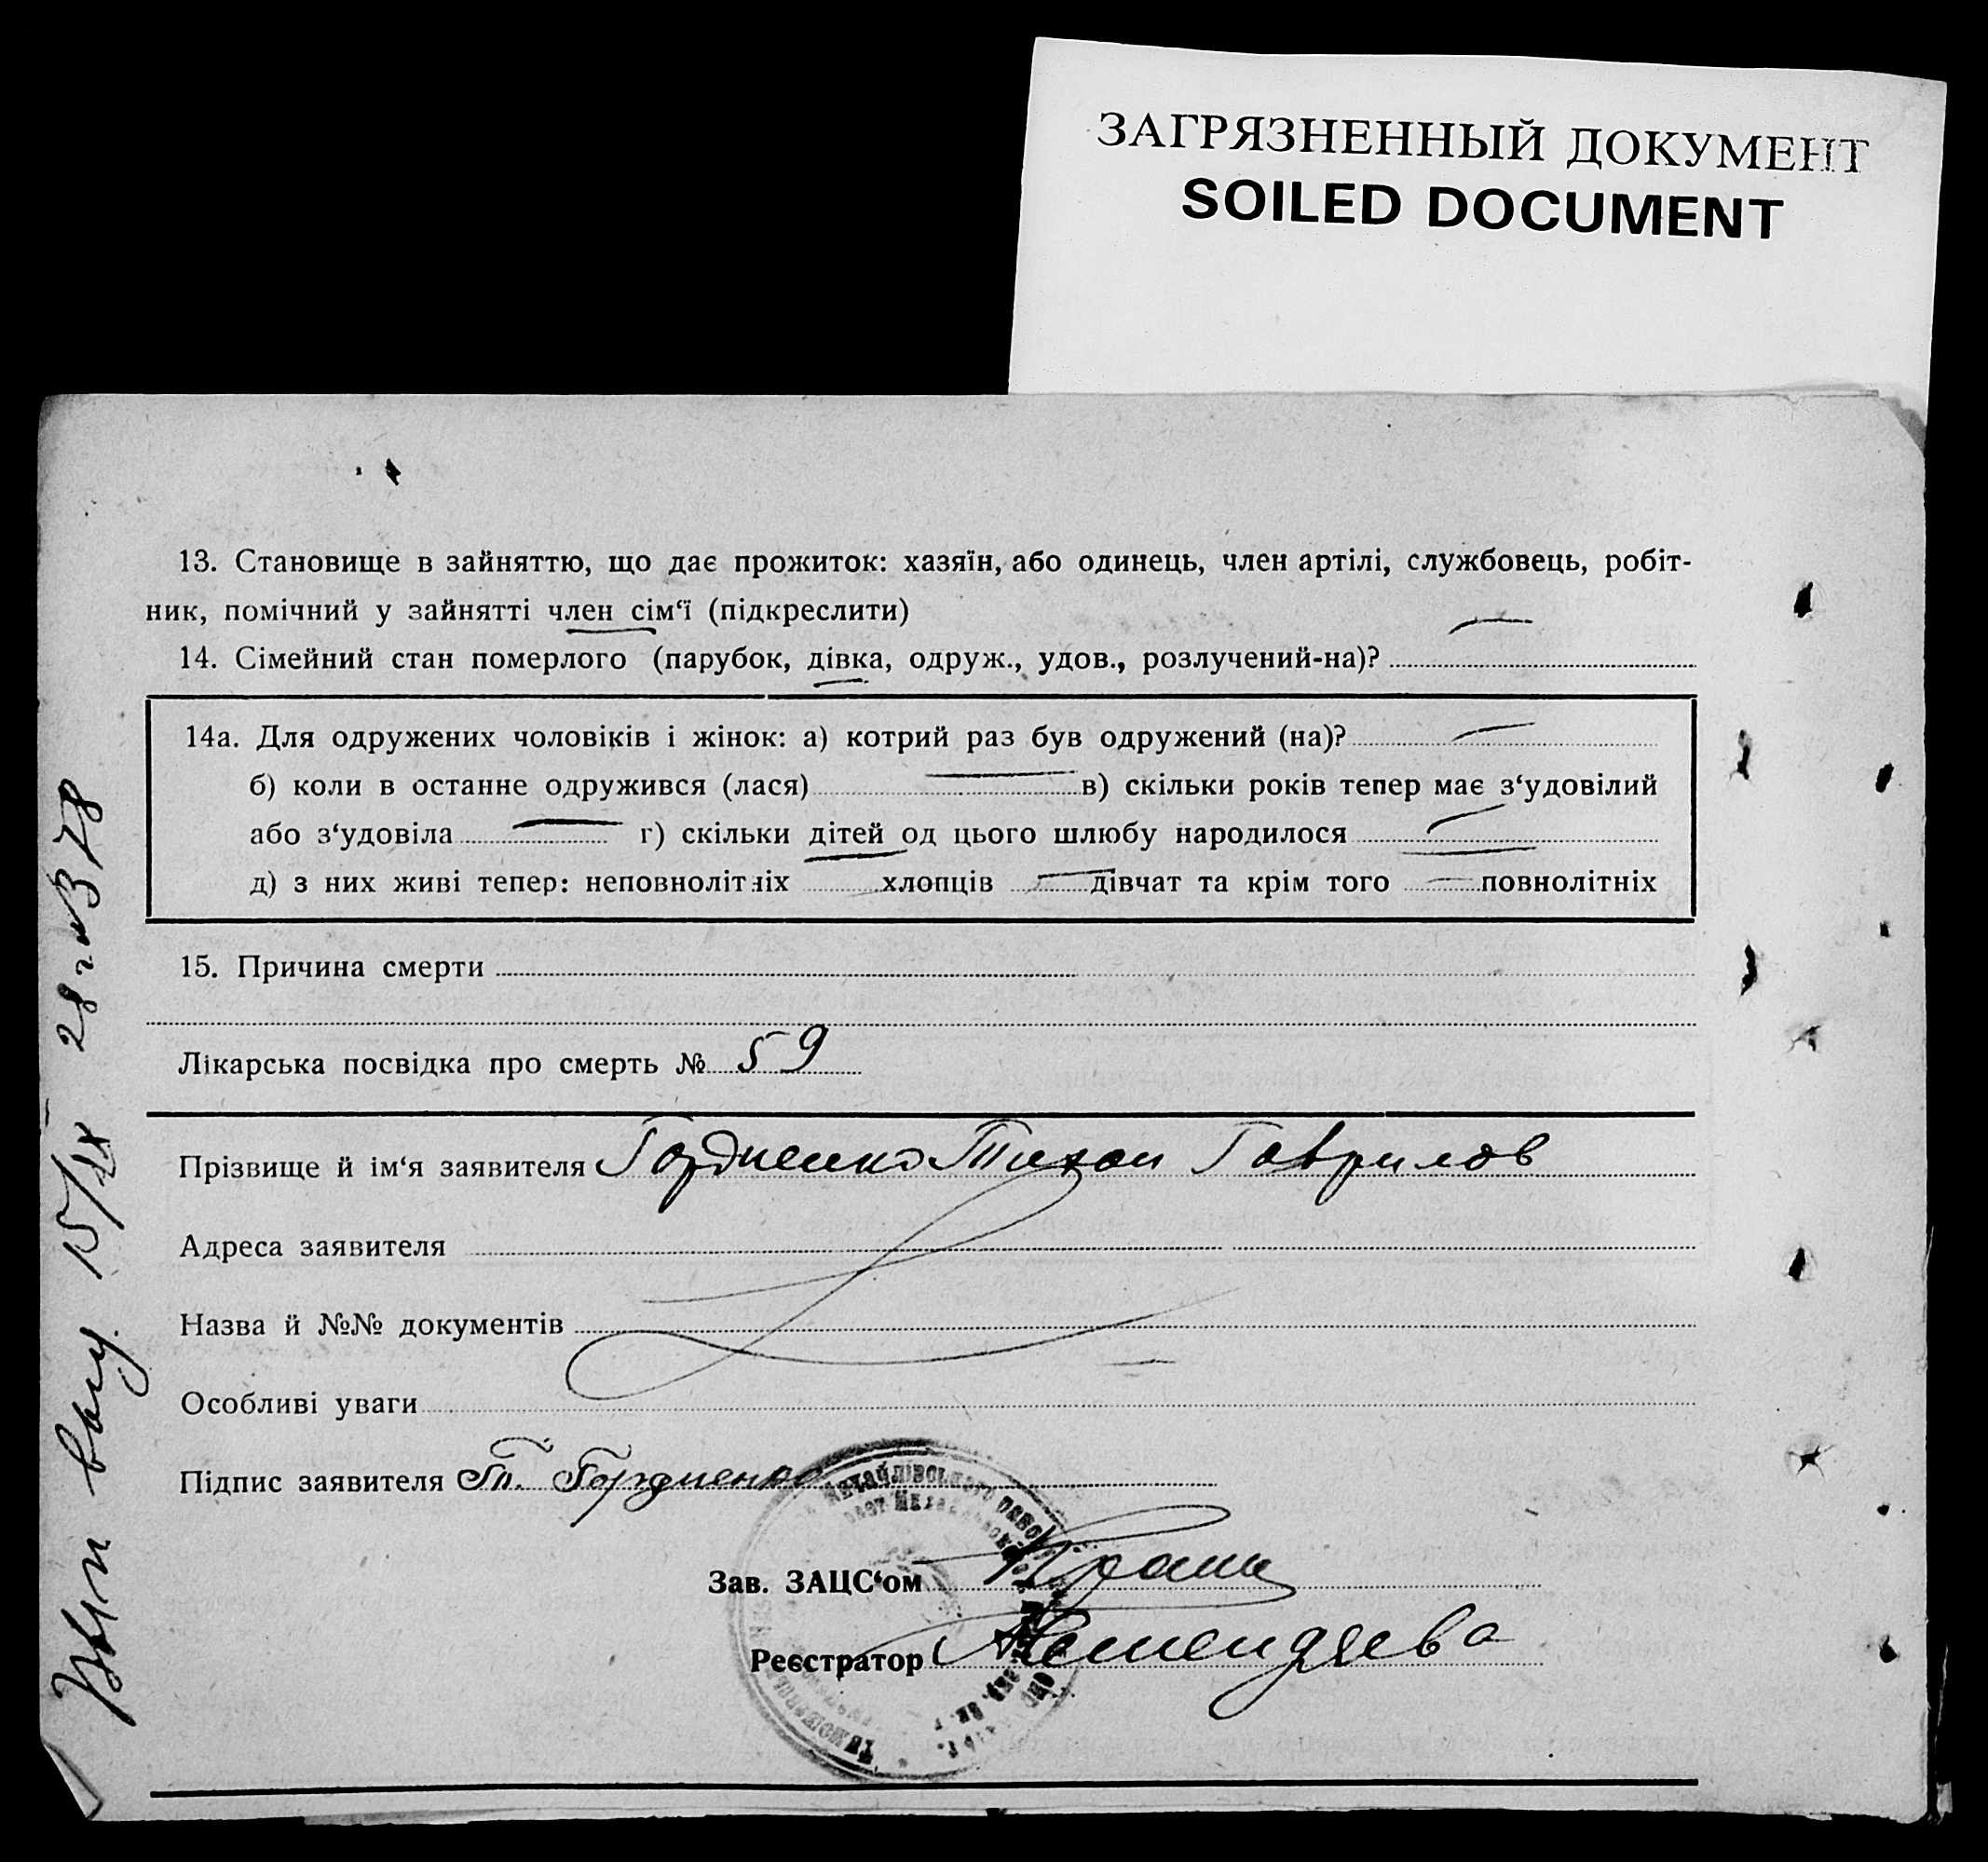 ЗАГРЯЗНЕННЫЙ ДОКУМЕНТ
SOILED DOCUMENT
13. Становище в зайняттю, що дає прожиток: хазяїн, або одинець, член артілі, службовець, робіт-
ник, помічний у зайнятті член сім‘ї (підкреслити)
14. Сімейний стан померлого (парубок, дівка, одруж., удов., розлучений-на)?
14а. Для одружених чоловіків і жінок: а) котрий раз був одружений (на)?
б) коли в останне одружився (лася) в) скільки років тепер має з‘удовілий
або з‘удовіла г) скільки дітей од цього шлюбу народилося
д) з них живі тепер: неповнолітніх хлопців дівчат та крім того повнолітніх
15. Причина смерти
Лікарська посвідка про смерть № 59
Прізвище й ім‘я заявителя Гордиенко Тихон Гаврилов
Адреса заявителя
Назва й №№ документів
Особливі уваги
Підпис заявителя Т. Гордиенко
Зав. ЗАЦС‘ом
Реєстратор
15/IX 28 г № 378